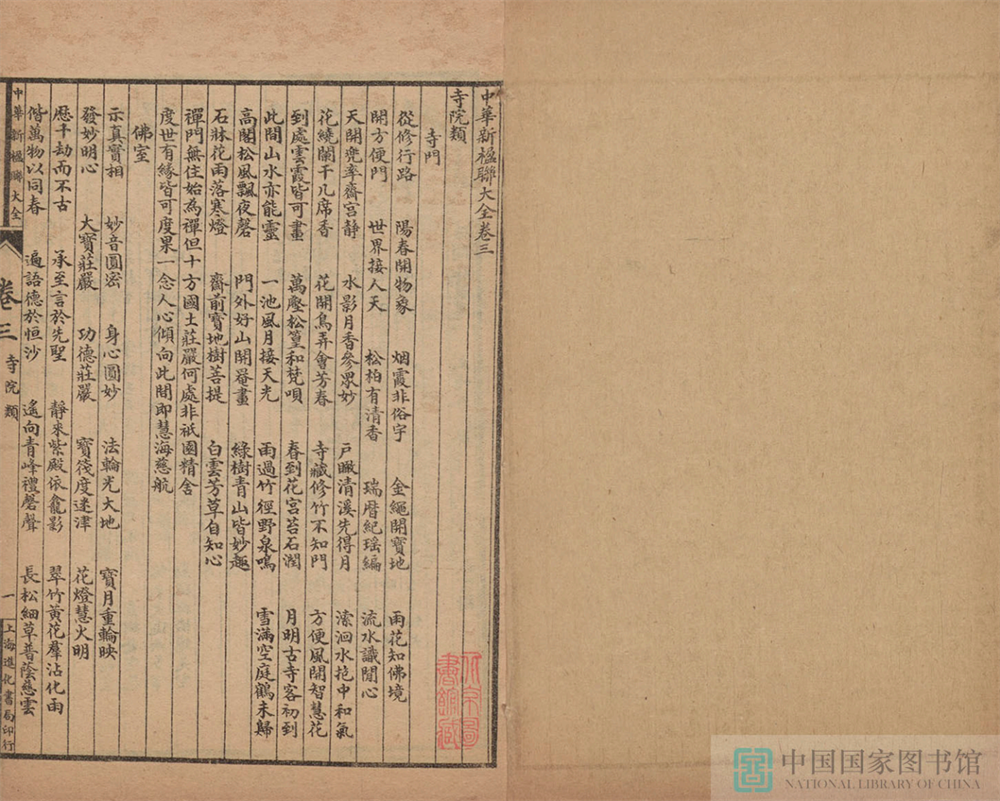 中華新楹聯大全卷三
寺院類
寺門
從修行路 陽春開物象 烟霞非俗宇 金繩開寶地 雨花知佛境
開方便門 世界接人天 松柏有清香 瑞曆紀瑤編 流水識閒心
天開兜率齋宮静 水影月香參眾妙 戶瞰清溪先得月 瀠洄水抱中和氣
花繞闌干几席香 花開鳥弄會芳春 寺藏修竹不知門 方便風開智慧花
到處雲霞皆可畫 萬壑松篁和梵唄 春到花宮苔石潤 月明古寺客初到
此間山水亦能靈 一池風月接天光 雨過竹徑野泉鳴 雪滿空庭鶴未歸
高閣松風飄夜磬 門外好山開罨畫 綠樹青山皆妙趣
石牀花雨落寒燈 齋前寶地樹菩提 白雲芳草自知心
禪門無住始為禪但十方國土莊嚴何處非祇園精舍
度世有緣皆可度果一念人心傾向此間即慧海慈航
佛室
示真實相 妙音圓密 身心圓妙 法輪光大地 寶月重輪映
發妙明心 大寶莊嚴 功德莊嚴 寶筏度迷津 花燈慧火明
歷千劫而不古 承至言於先聖 靜來紫殿依龕影 翠竹黃花羣沾化雨
偕萬物以同春 遍語德於恒沙 遙向青峰禮磬聲 長松細草普蔭慈雲
中華新楹聯大全
卷三
寺院類
一
上海進化書局印行
中国国家图书馆
NATIONAL LIBRARY OF CHINA